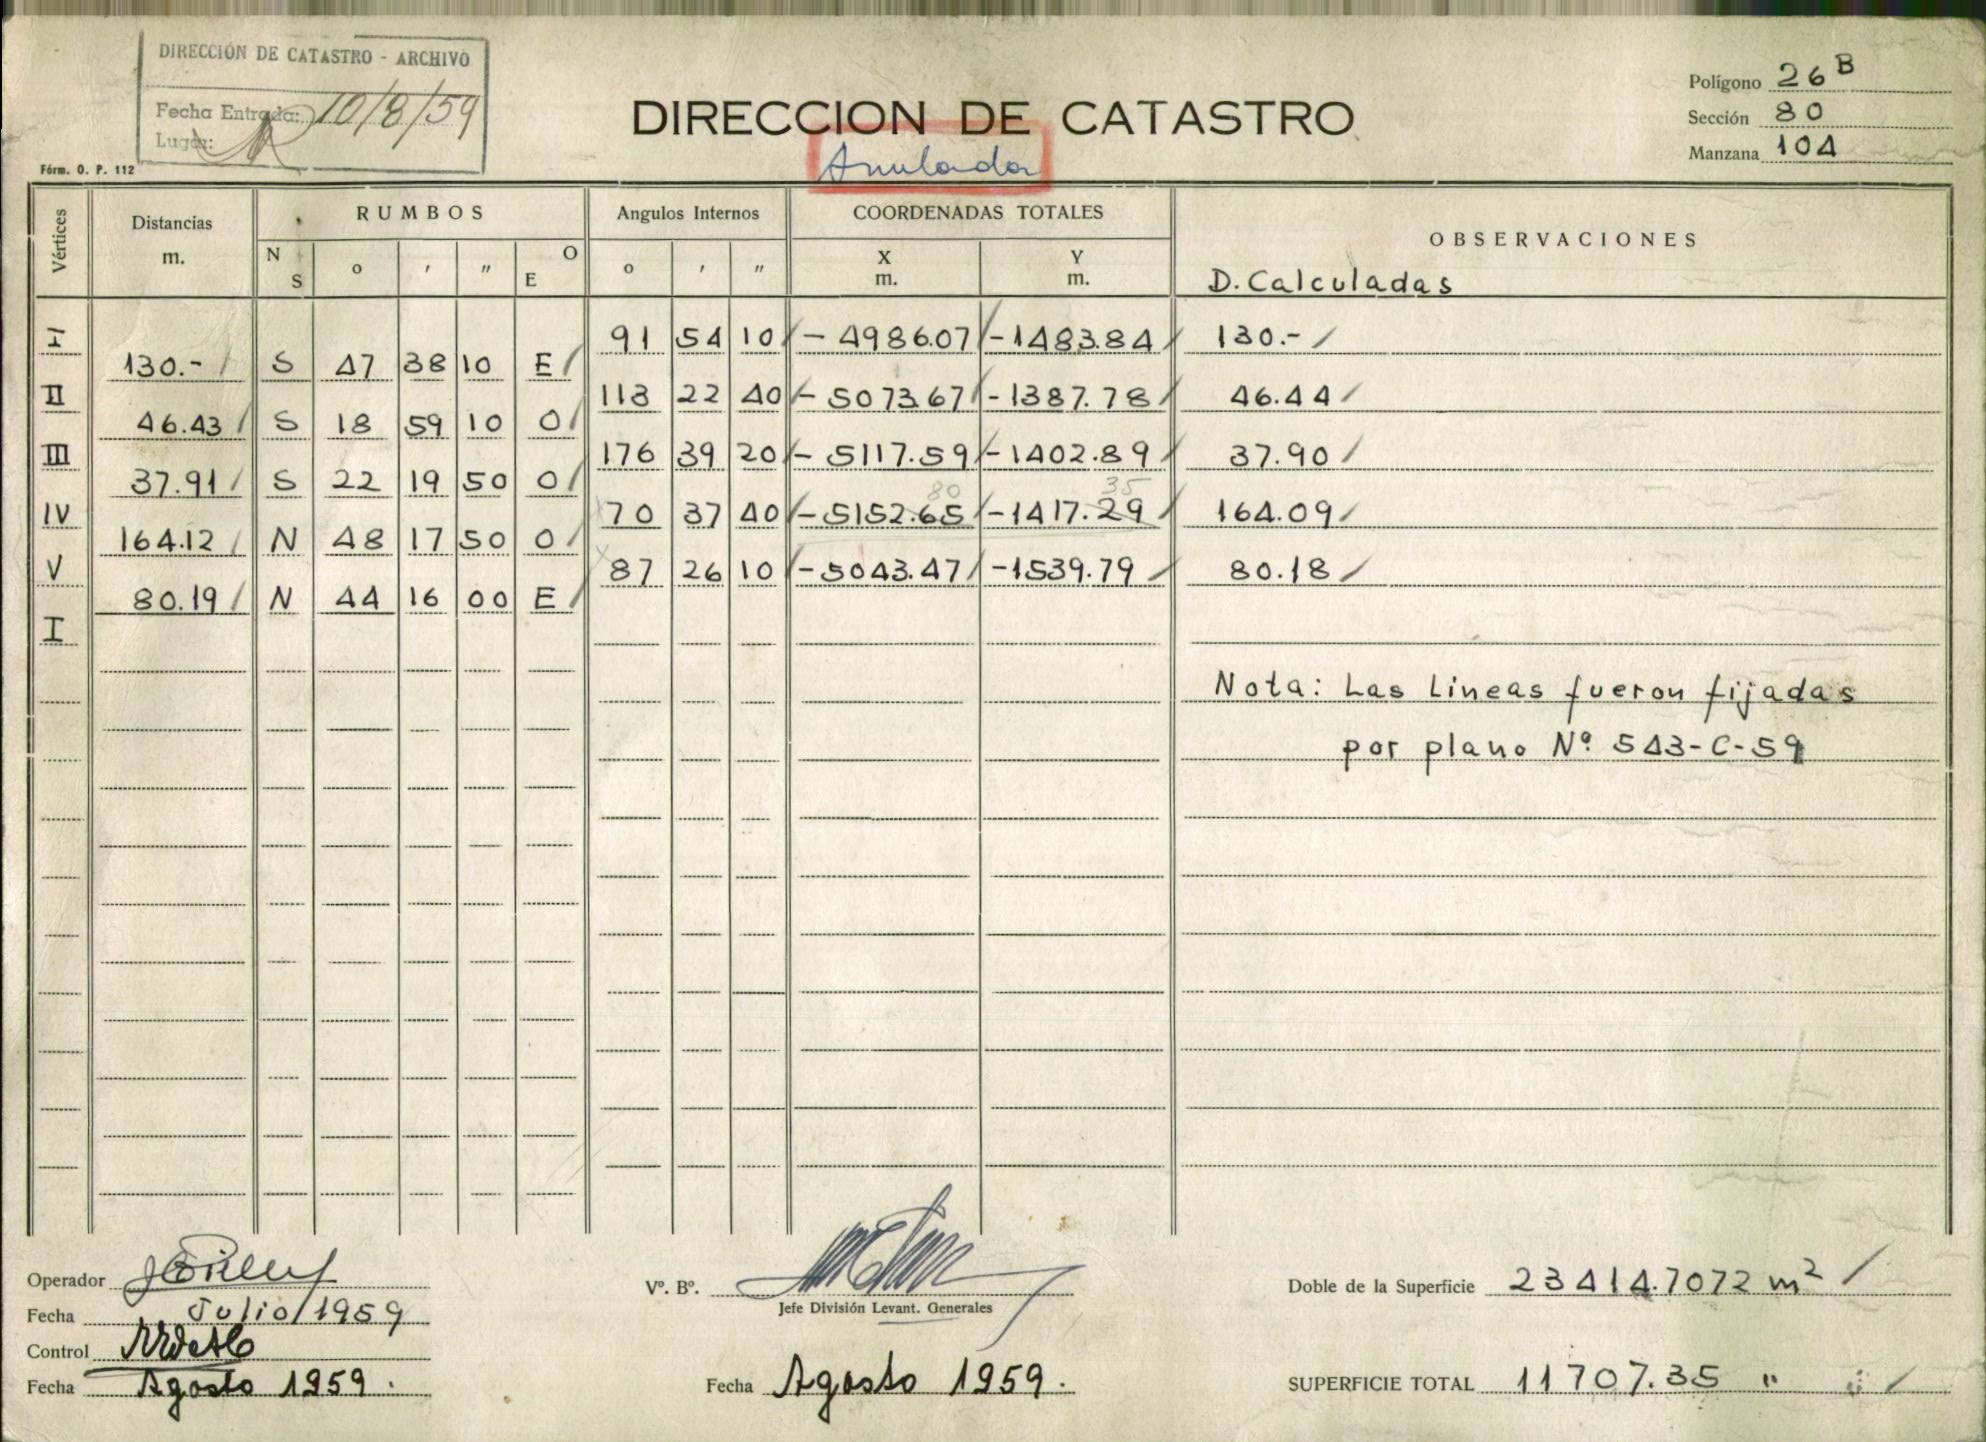 DIRECCIÓN DE CATASTRO - ARCHIVO
Fecha Entrada: 10/8/59
Lugar:
Fórm. O. P. 112
DIRECCION DE CATASTRO
Anulada
Polígono 26 B
Sección 80
Manzana 104
Vértices Distancias m. RUMBOS Angulos Internos COORDENADAS TOTALES OBSERVACIONES
N S o ' " O E o ' " X m. Y m.
D. Calculadas
I 91 54 10 - 4986.07 -1483.84 130.-
130.- S 47 38 10 E
II 113 22 40 - 5073.67 -1387.78 46.44
46.43 S 18 59 10 O
III 176 39 20 - 5117.59 -1402.89 37.90
37.91 S 22 19 50 O
80 35
IV 70 37 40 -5152.65 -1417.29 164.09
164.12 N 48 17 50 O
V 87 26 10 -5043.47 -1539.79 80.18
80.19 N 44 16 00 E
I
Nota: Las Lineas fueron fijadas
por plano Nº 543-C-59
Operador
Fecha Julio/1959
Control
Fecha Agosto 1959.
Vº. Bº.
Jefe División Levant. Generales
Fecha Agosto 1959.
Doble de la Superficie 23414.7072 m²
SUPERFICIE TOTAL 11707.35 " "